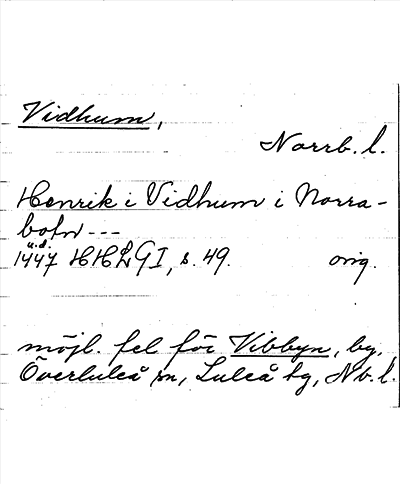 Vidhum,
Norrb. l.
Henrik i Vidhum i Norra-
botn ---
u.d.
1447 HHLGI, s. 49. orig.
möjl. fel för Vibbyn, by,
Överluleå sn, Luleå tg, Nb. l.